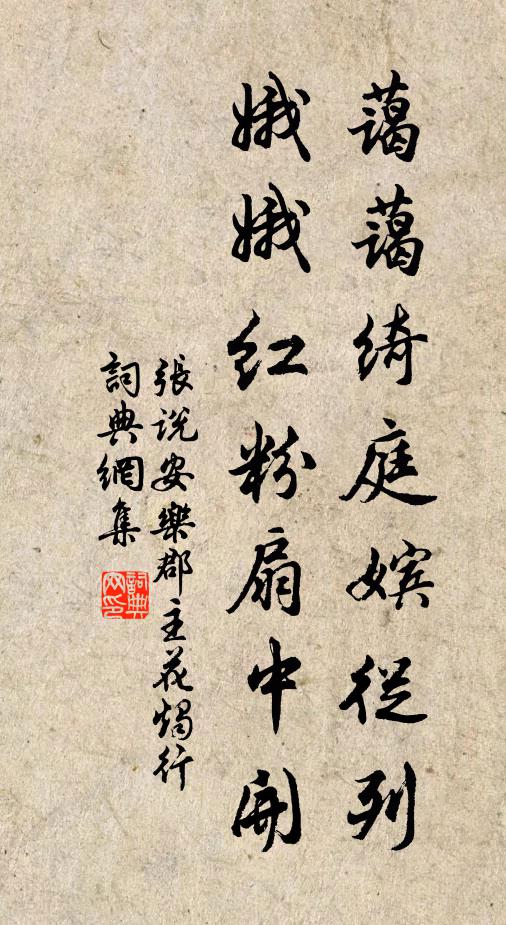 藹藹綺庭嬪從列
娥娥紅粉扇中開
張說安樂郡主花燭行
詞典網集
詞典網印